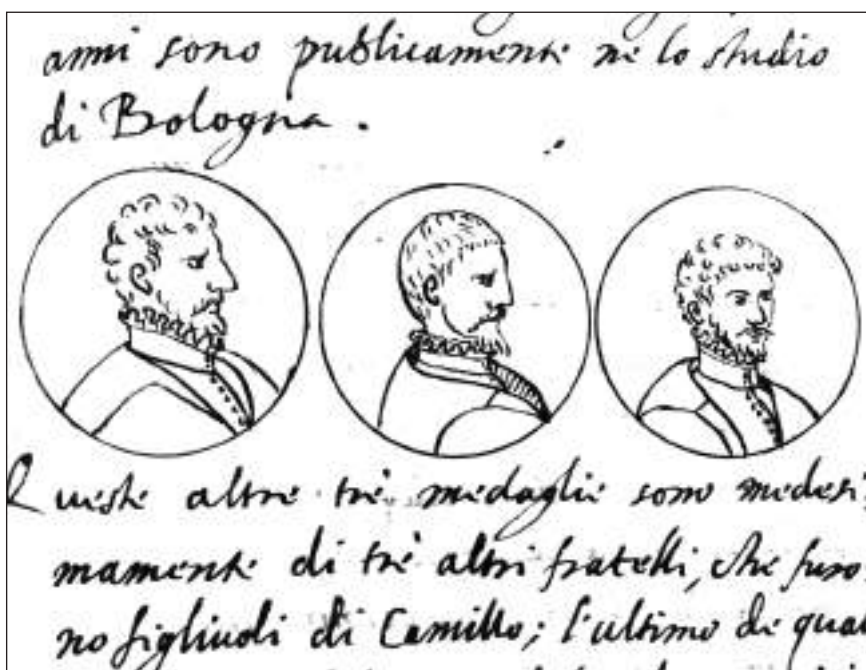 anni sono publicamente ne lo studio
di Bologna.
Queste altre trè medaglie sono medesi,
mamente di trè altri fratelli, che furo,
no figliuoli di Camillo; l'ultimo de qual